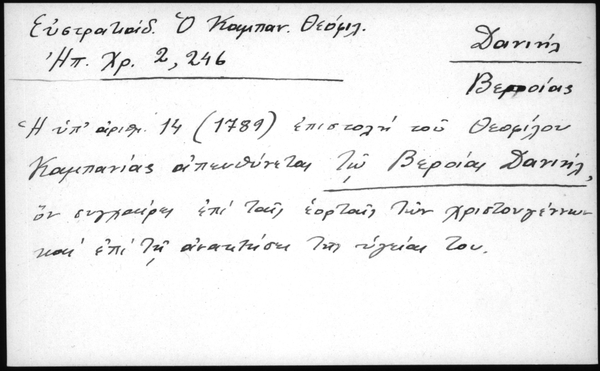 Εὐστρατιάδ. Ὁ Καμπαν. Θεόφιλ.
Ἠπ. Χρ. 2, 246
Δανιήλ
Βεροίας
Ἡ ὑπ' ἀριθ. 14 (1789) ἐπιστολή τοῦ Θεοφίλου
Καμπανίας ἀπευθύνεται τῷ Βεροίας Δανιήλ,
ὅν συγχαίρει ἐπί ταῖς ἑορταῖς τῶν χριστουγέννων
καί ἐπί τῇ ἀνακτήσει τῆς ὑγείας του.